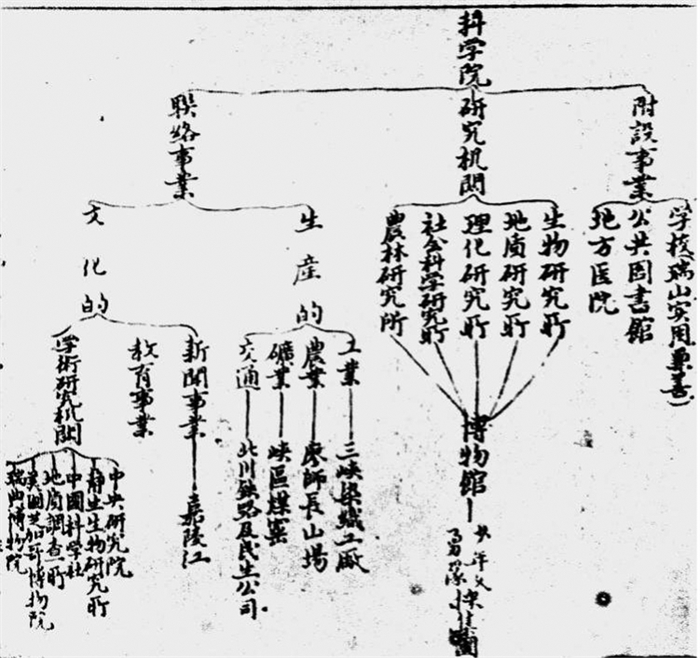 科学院
附設事業
研究机関
聯絡事業
学校(瑞山实用兼善)
公共圖書館
地方医院
生物研究所
地质研究所
理化研究所
社会科学研究所
農林研究所
博物館
少年义
勇隊
生産的
文化的
工業
農業
礦業
交通
三峡染織工厰
廖師長山場
峡區煤窯
北川鉄路及民生公司
新聞事業
教育事業
学術研究机関
嘉陵江
中央研究院
静生生物研究所
中國科学社
地质調查所
美國芝加哥博物院
瑞典博物院